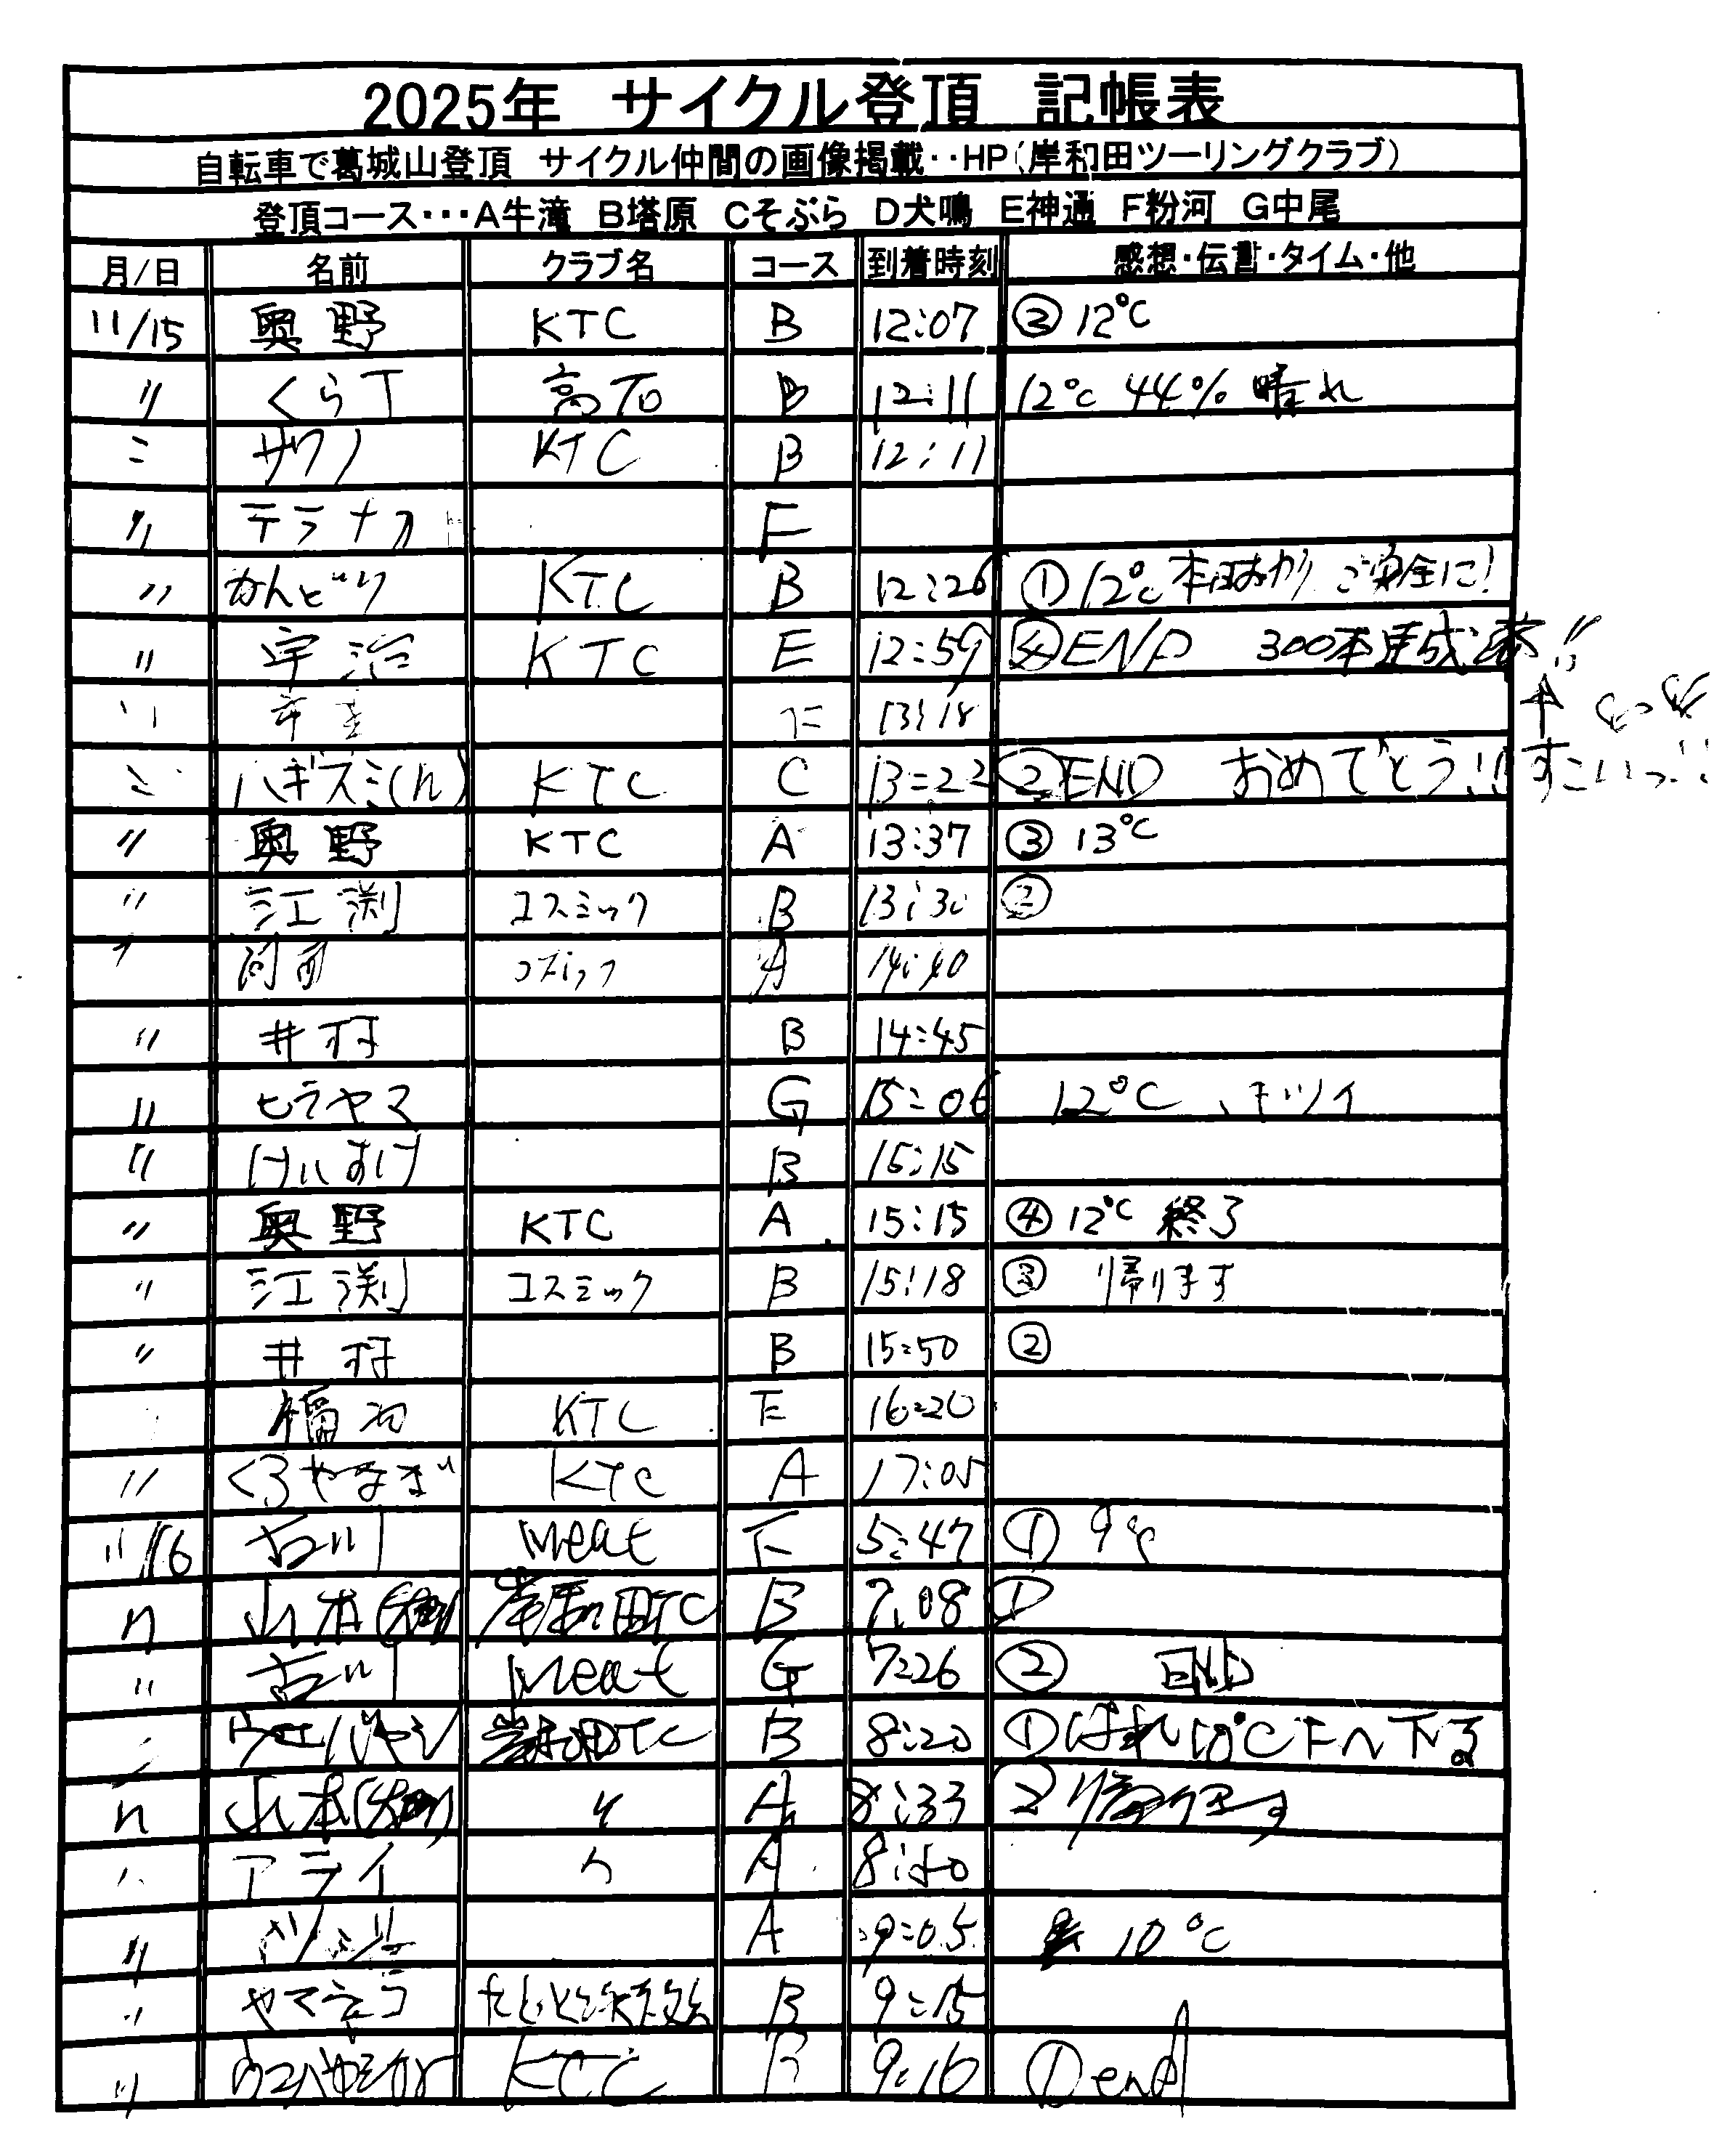 2025年 サイクル登頂 記帳表
自転車で葛城山登頂 サイクル仲間の画像掲載‥HP(岸和田ツーリングクラブ)
登頂コース・・・A牛滝 B塔原 Cそぶら D犬鳴 E神通 F粉河 G中尾
月/日 名前 クラブ名 コース 到着時刻 感想・伝言・タイム・他
11/15 奥野 KTC B 12:07 ② 12℃
〃 くらT B 12:11 12℃ 44% 晴れ
〃 サワノ KTC B 12:11
〃 テラナカ F
〃 かんどり KTC B 12:26 ① 12℃ ご安全に!
〃 宇治 KTC E 12:59 ④ END 300本達成
〃 F 13:18
〃 ハギスミ(れ) KTC C 13:22 ② END おめでとう!! すごいっ!!
〃 奥野 KTC A 13:37 ③ 13℃
〃 江渕 コスミック B 13:30 ②
〃 コスミック A 14:40
〃 井村 B 14:45
〃 ヒラヤマ G 15:06 12℃、キツイ
〃 けいすけ B 15:15
〃 奥野 KTC A 15:15 ④ 12℃ 終了
〃 江渕 コスミック B 15:18 ③ 帰ります
〃 井村 B 15:50 ②
KTC F 16:20
〃 くろやなぎ KTC A 17:05
11/16 古川 Meat F 5:47 ① 9℃
〃 山本 岸和田TC B 7:08 ①
〃 古川 Meat G 7:26 ② END
〃 ウエバヤシ 岸和田TC B 8:20 ① はれ 10℃ Fへ下る
〃 山本 〃 A 8:33 ② 帰ります
〃 アライ 〃 A 8:50
〃 A 9:05 10℃
〃 B 9:15
〃 KTC B 9:16 ① end